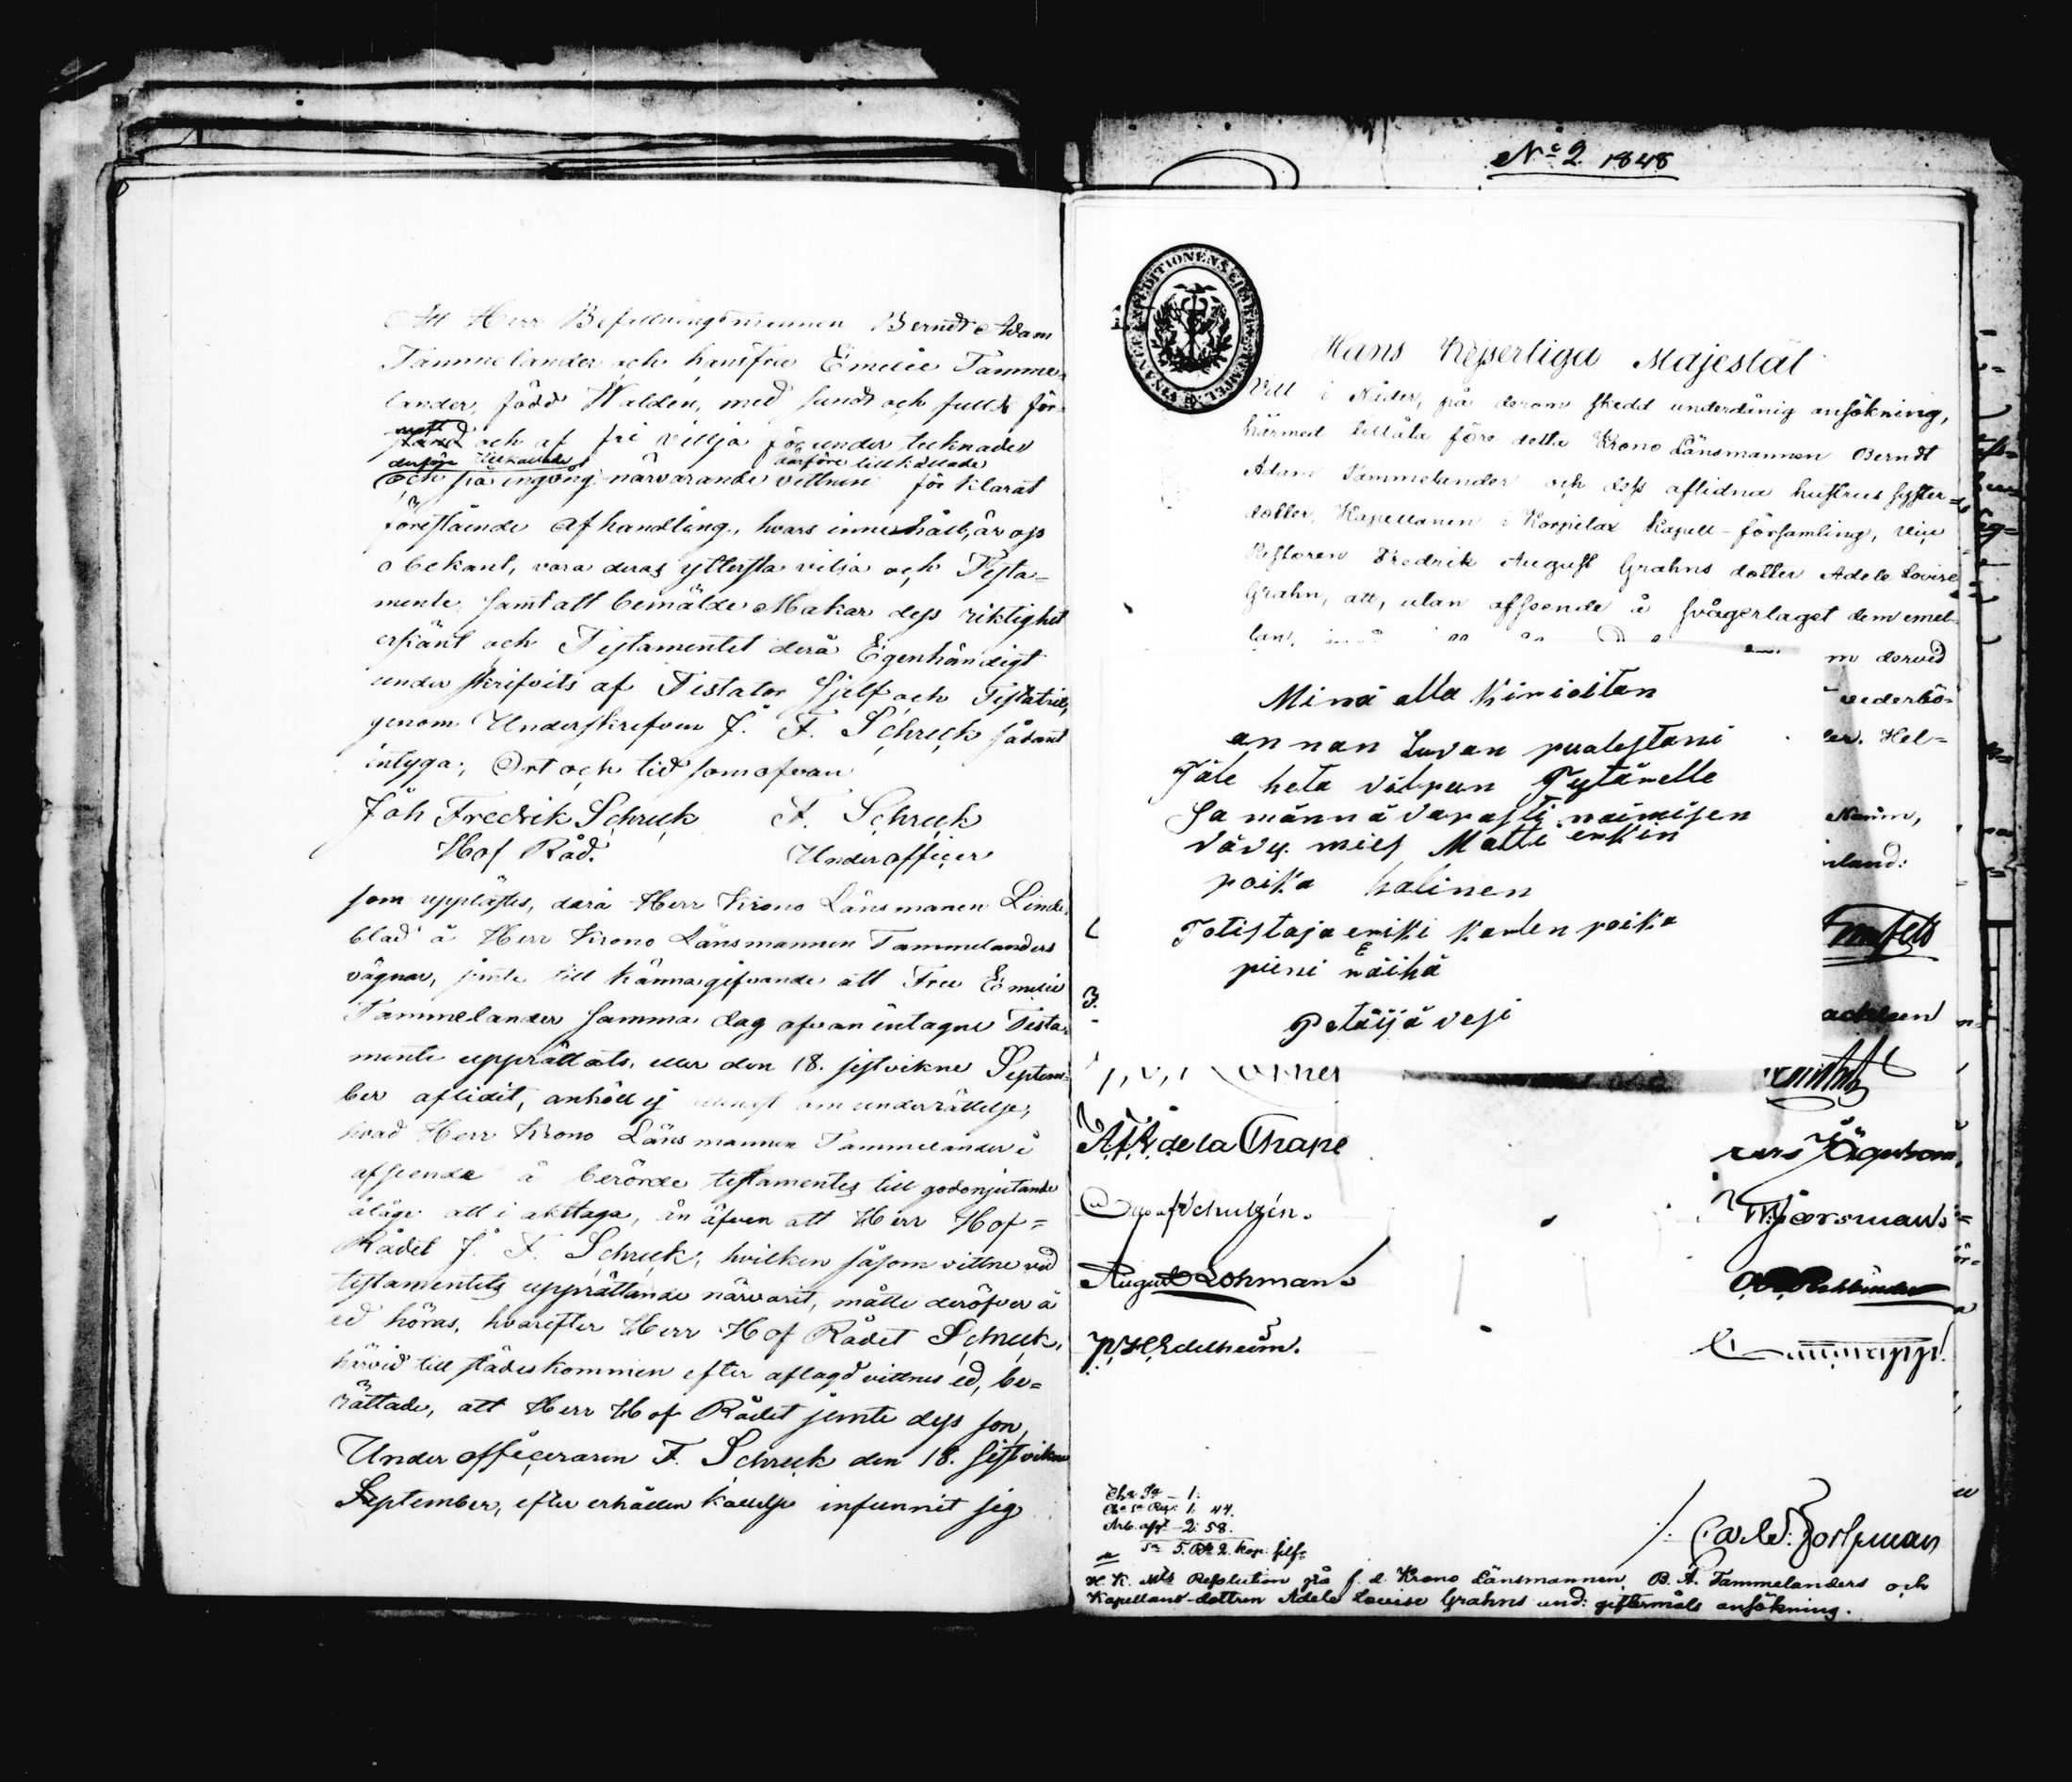 Att Herr Befallningsmannen Berndt Adam
Tammelander och hans fru Emelie Tamme-
lander, född Walden, med sundt och fullt för-
nuft och af fri villja för undertecknade
derföre tillkallade därföre tillkallade
och på ingång närvarande vittnen förklarat
förestående Afhandling, hvars innehåll är oss
obekant, vara deras yttersta vilja och Testa-
mente, samt att bemälde Makar dess riktighet
erkänt och Testamentet derå Egenhändigt
underskrifvits af Testator sjelf och Testatrix,
genom Underskrifven J. F. Schreck sådant
intyga; Ort och tid som ofvan
Joh Fredrik Schreck F. Schreck
Hof Råd. Underofficer
som upplästes, derå Herr Krono Länsmanen Linde-
blad å Herr Krono Länsmannen Tammelanders
vägnar, jemte till känna gifvande att Fru Emelie
Tammelander samma dag ofvan intagne Testa-
mente upprättats, eller den 18. sistvikne Septem-
ber aflidit, anhöll ej om underrättelse,
hvad Herr Krono Länsmannen Tammelander i
afseende å berörde testamentes till godonjutande
ålåge att i akttaga, än äfven att Herr Hof-
Rådet J. F. Schreck, hvilken såsom vittne vid
testamentets upprättande närvarit, måtte deröfver å
ed höras, hvarefter Herr Hof Rådet Schreck,
härvid tillstädeskommen efter aflagd vittnes ed, be-
rättade, att Herr Hof Rådet jemte dess son,
Under officeraren F. Schreck den 18. sistvikne
September, efter erhållen kallelse infunnit sig
No 2 1848
FINANCE EXPEDITIONENS
Hans Kejserliga Majestät
Vill i Nåder, på derom skedd underdånig ansökning,
härmed tillåta före detta Krono Länsmannen Berndt
Adam Tammelander och dess aflidna hustrus syster-
dotter, Kapellanen i Korpilax Kapell-församling, Vice
Pastoren Fredrik August Grahns dotter Adele Lovise
Grahn, att, utan afseende å svågerlaget dem emel-
lan,
m dervid
vederbö-
Hel-
Namn,
nland:
Minä alla Kirioitan
an nan Luvan puolestani
Jäle heta vilpun Tytärelle
Ja männä Varasti naimisen
Väväy mies Matti erkin
poika halinen
Totistaja eriki Karlen poika
pieni näihä
Petäijä vesi
3.
A. F. R. de la Chape
August Lohman.
P. H. Edelheim.
1: 44.
2: 58.
5. R. 2. kop. silf.
H. K. Mts Resolution på f. d. Krono Länsmannen B. A. Tammelanders och
Kapellans-dottren Adele Lovise Grahns und: giftermåls ansökning.